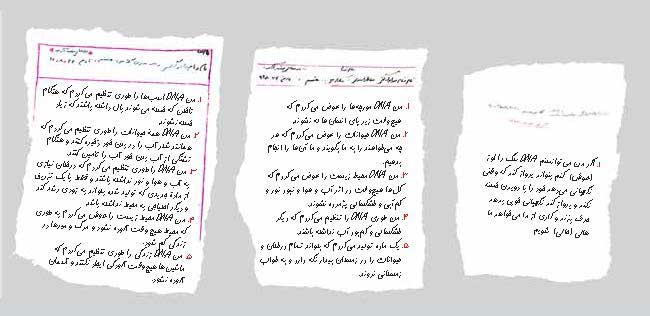 ۱. من DNA اسب‌ها را طوری تنظیم می‌کردم که هنگام
تاختن که خسته می‌شوند بال داشته باشند که زیاد
خسته نشوند
۲. من DNA همهٔ حیوانات را طوری تنظیم می‌کردم که
همانند شتر آب را در بدن خود ذخیره کنند و هنگام
تشنگی از آب بدن خود آب را تأمین کنند.
۳. من DNA را طوری تنظیم می‌کردم که درختان نیازی
به آب و هوا و نور نداشته باشند و فقط با یک
از مادهٔ جدیدی که تولید شده بتواند به زودی رشد کند
و دیگر احتیاجی به محیط نداشته باشد
۴. من DNA محیط زیست را عوض می‌کردم به طوری
که محیط هیچ وقت آلوده نشود و مرگ و میرها در
زندگی کم شود.
۵. من DNA زندگی را طوری تنظیم می‌کردم که
ماشین‌ها هیچ‌وقت آلودگی ایجاد نکنند و آسمان
آلوده نشود.
۱. من DNA مورچه‌ها را عوض می‌کردم که
هیچ‌وقت زیر پای انسان‌ها له نشوند
۲. من DNA حیوانات را عوض می‌کردم که هر
چه می‌خواهند را به ما بگویند و ما آن‌ها را انجام
بدهیم.
۳. من DNA محیط زیست را عوض می‌کردم که
گل‌ها هیچ‌وقت در اثر آب و هوا و نبود نور و
کم آبی و خشکسالی پژمرده نشوند
۴. من طوری DNA را تنظیم می‌کردم که دیگر
خشکسالی و کمبود آب نداشته باشد
۵. یک ماده تولید می‌کردم که بتواند تمام درختان و
حیوانات را در زمستان بیدار نگه دارد و به خواب
زمستانی نروند.
۱. اگر من می‌توانستم DNA سگ را
عوض کنم بتواند پرواز کند که وقتی
نگهبانی می‌دهد خود را با دویدن خسته
نکند و پرواز کند نگهبانی خوبی بدهد
حرف بزند و کاری از ما می‌خواهد ما
حالی (حالی) شویم